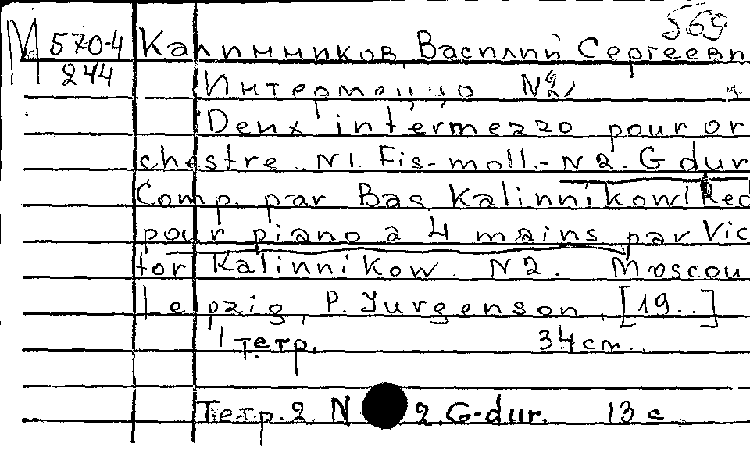 569
М 570-4 Калинников, Василий Сергееви
244
Интермеццо N2
Deux intermezzo pour or
chestre. N1. Fis-moll.- N2. G dur
Comp. par Bas Kalinnikow. Red
pour piano à 4 mains par Vic
tor Kalinnikow. N2. Moscou
Leipzig, P. Jurgenson, [19..]
1 тетр. 34 cm.
Тетр. 2 N 2. G-dur. 13 c